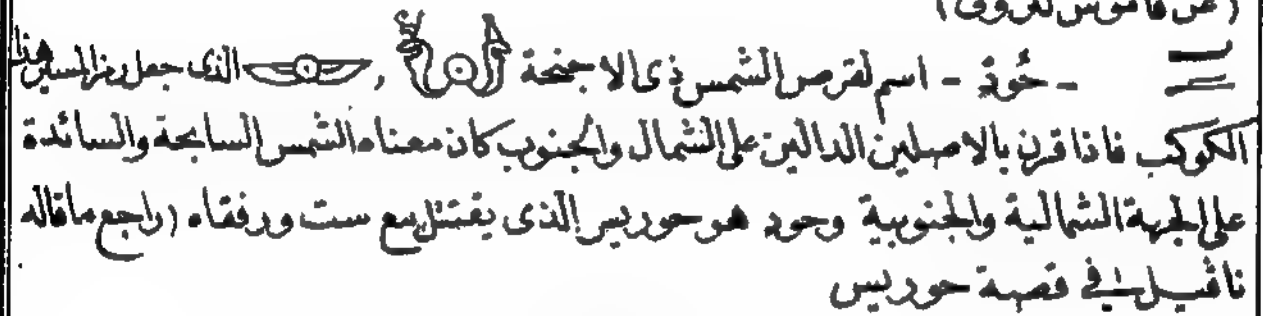 (ص قاموس لعروف)
- حُود - اسم لقرص الشمس ذى الاجنحة , الذى جعل رمز السير هذا
الكوكب فاذا قرن بالاصلين الدالين على الشمال والجنوب كان معناه الشمس السابحة والسائدة
على الجهة الشمالية والجنوبية وحود هو حوريس الذى يقتتل مع ست ورفقاه (راجع ماقاله
ناڤيل فى قصة حوريس